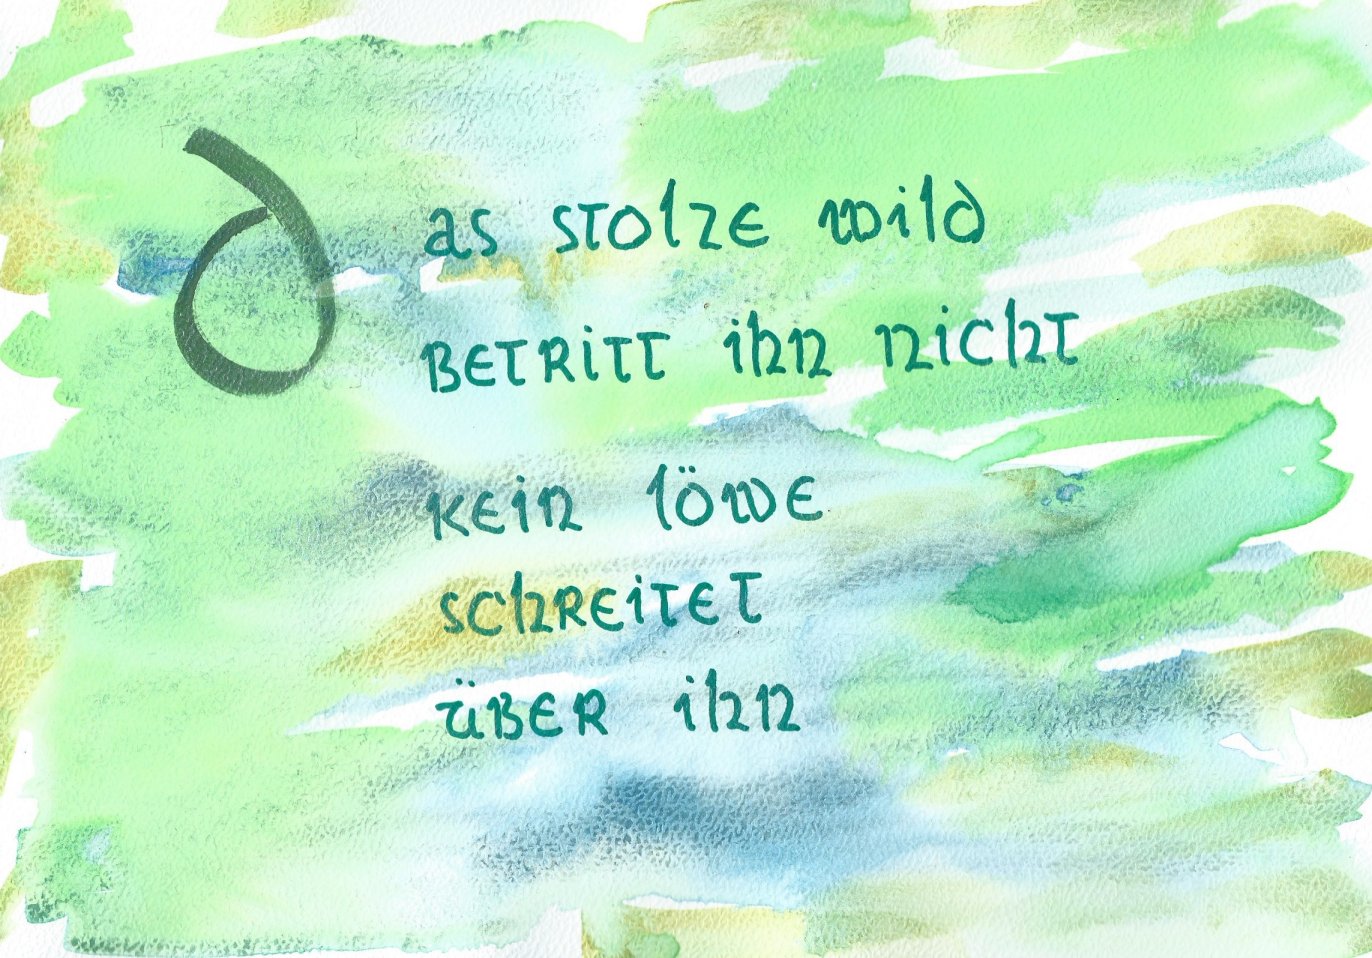 das stolze wild
betritt ihn nicht
kein löwe
schreitet
über ihn